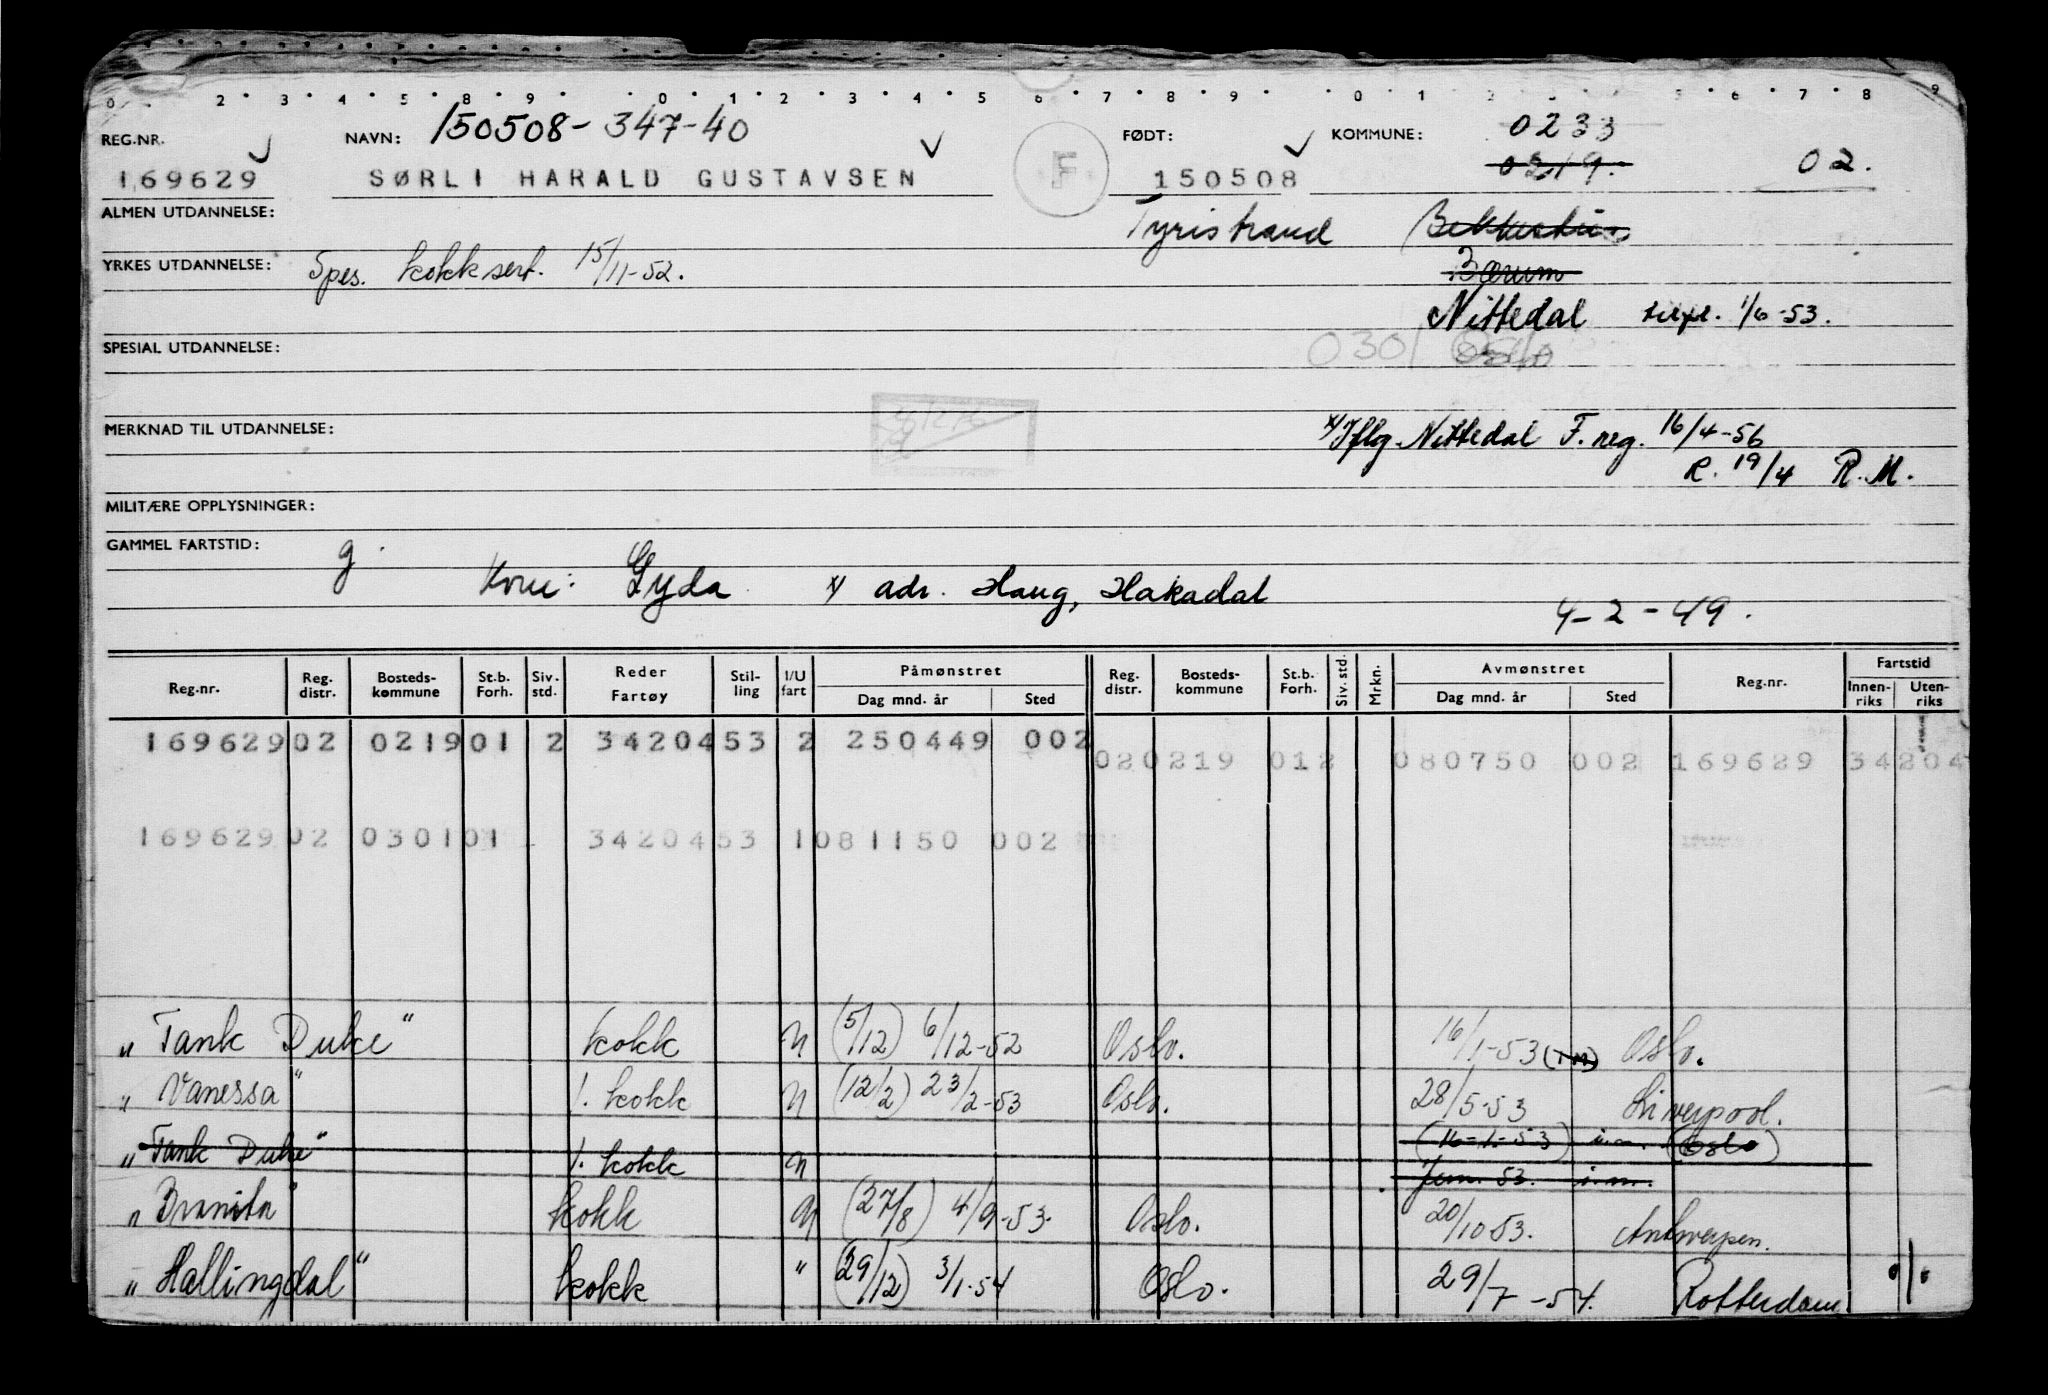 0 2 3 4 5 8 9 0 1 2 3 4 5 6 7 8 9 0 1 2 5 6 7 8 9
REG.NR. NAVN: 150508-347-40 FØDT: KOMMUNE: 0233
169629 SØRLI HARALD GUSTAVSEN F 150508 0219. 02.
ALMEN UTDANNELSE: Tyristrand
YRKES UTDANNELSE: Spes. kokksert. 15/11-52. Bærum
Nittedal 1/6-53.
SPESIAL UTDANNELSE: 0301 Oslo
MERKNAD TIL UTDANNELSE: x/ Iflg. Nittedal F.reg. 16/4-56
R. 19/4 R.M.
MILITÆRE OPPLYSNINGER:
GAMMEL FARTSTID: g.
Kone: Lyda x/ adr. Haug, Hakadal
4-2-49.
Reg.nr. Reg. distr. Bosteds- kommune St.b. Forh. Siv. std. Reder Fartøy Stil- ling I/U fart Påmønstret Dag mnd. år Sted Reg. distr. Bosteds- kommune St.b. Forh. Siv. std. Mrkn. Avmønstret Dag mnd. år Sted Reg.nr. Fartstid Innen- riks Uten- riks
169629 02 0219 01 2 34204 53 2 250449 002
020219 012 080750 002 169629 34204
169629 02 0301 01 34204 53 1 081150 002
"Tank Duke" kokk U (5/12) 6/12-52 Oslo. 16/1-53 (TM) Oslo.
"Vanessa" 1. kokk U (12/2) 23/2-53 Oslo. 28/5-53 Liverpool.
"Tank Duke" 1. kokk U (16-1-53) i.m. (Oslo)
Jan. 53. i.m.
"Branita" kokk U (27/8) 4/9-53. Oslo. 20/10 53. Antwerpen.
"Hallingdal" kokk " (29/12) 3/1-54 Oslo. 29/7-54. Rotterdam